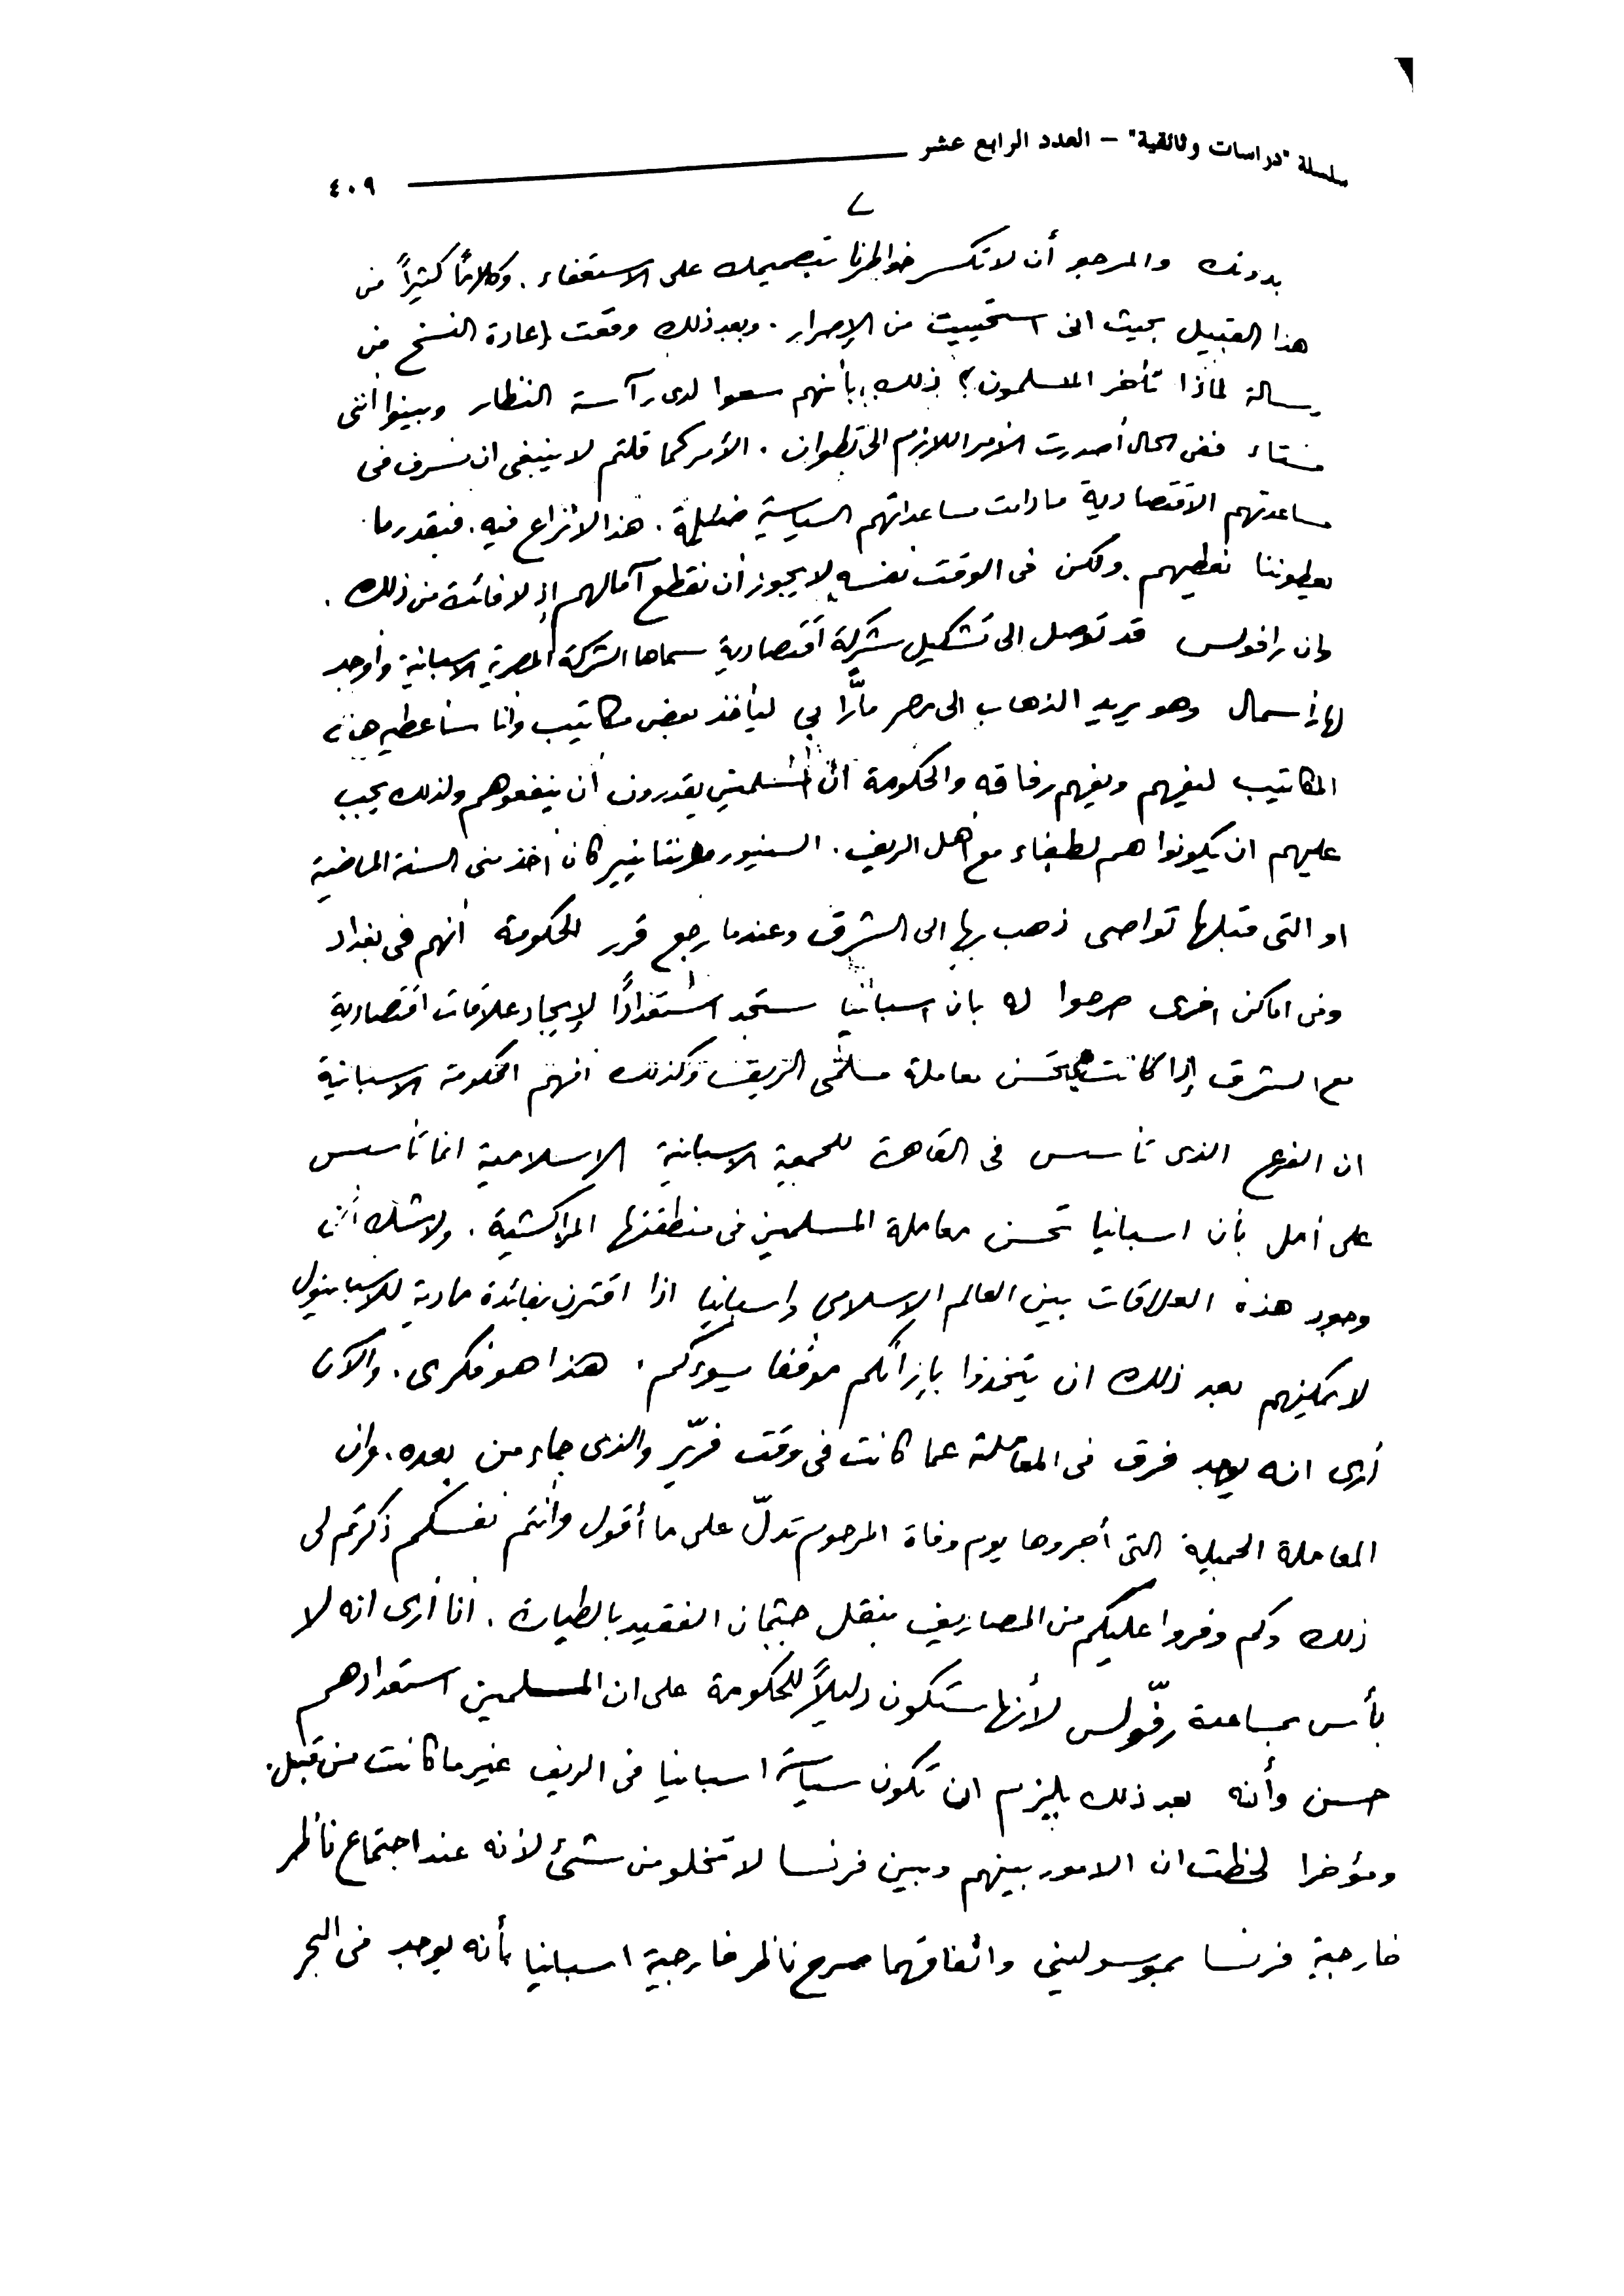 سلسلة "دراسات وثائقية" – العدد الرابع عشر
٤٠٩
بدونك والمرجو أن لا تكسر خواطرنا بتصميمك على الاستعفاء. وكلامًا كثيرًا من
هذا القبيل بحيث انى استحييت من الإصرار. وبعد ذلك وقعت إعادة النسخ من
رسالة لماذا تأخر المسلمون؟ ذلك بأنهم سعوا لدى رآسة النظار وبينوا أننى
مستاء ففى الحال أصدرت الأمر اللازم الى تطوان. الأمر كما قلتم لا ينبغى ان نسرف فى
مساعدتهم الاقتصادية ما دامت مساعداتهم السياسية ضئيلة. هذا لا نزاع فيه. فبقدر ما
يعطوننا نعطيهم. ولكن فى الوقت نفسه لا يجوز أن نقطع آمالهم إذ لا فائدة من ذلك.
وان رافولس قد توصل الى تشكيل شركة اقتصادية سماها الشركة المصرية الاسبانية وأوجد
لها رأسمال وهو يريد الذهاب الى مصر مارًّا بي ليأخذ بعض مكاتيب وأنا سأعطيه هذه
المكاتيب ليفهم ويفهم رفاقه والحكومة أن المسلمين يقدرون أن ينفعوهم ولذلك يجب
عليهم ان يكونوا هم لطفاء مع أهل الريف. السنيور كان أخذ منى السنة الماضية
او التى قبلها تواصى ذهب بها الى الشرق وعندما رجع قرر للحكومة أنهم فى بغداد
وفى اماكن اخرى صرحوا له بان اسبانيا ستجد استعدادًا لإيجاد علاقات اقتصادية
مع الشرق إذا كانت تحسن معاملة مسلمى الريف وكذلك افهم الحكومة الاسبانية
ان الفرع الذى تأسس فى القاهرة للجمعية الاسبانية الإسلامية انما تأسس
على أمل بأن اسبانيا تحسن معاملة المسلمين فى منطقتها المراكشية. ولا شك أن
وجود هذه العلاقات بين العالم الإسلامى واسبانيا اذا اقترن بفائدة مادية للاسبانيول
لا يمكنهم بعد ذلك ان يتخذوا بازائكم موقفا يسوءكم. هذا هو فكرى. والآن
أرى انه يوجد فرق فى المعاملة عما كانت فى وقت فرّير والذى جاء من بعده. وان
المعاملة الجميلة التى أجروها يوم وفاة المرحوم تدلّ على ما أقول وأنتم نفسكم ذكرتم لى
ذلك وكم وفروا عليكم من المصاريف بنقل جثمان الفقيد بالطيارة. أنا أرى انه لا
بأس بمساعدة رفّولس لأنها ستكون دليلاً للحكومة على ان المسلمين استعدادهم
حسن وأنه بعد ذلك يلزم ان تكون سياسة اسبانيا فى الريف غير ما كانت من قبل.
ومؤخرا لحظت ان الامور بينهم وبين فرنسا لا تخلو من شئ لأنه عند اجتماع ناظر
خارجية فرنسا بموسولينى واتفاقهما صرح ناظر خارجية اسبانيا بأنه يوجد فى البحر